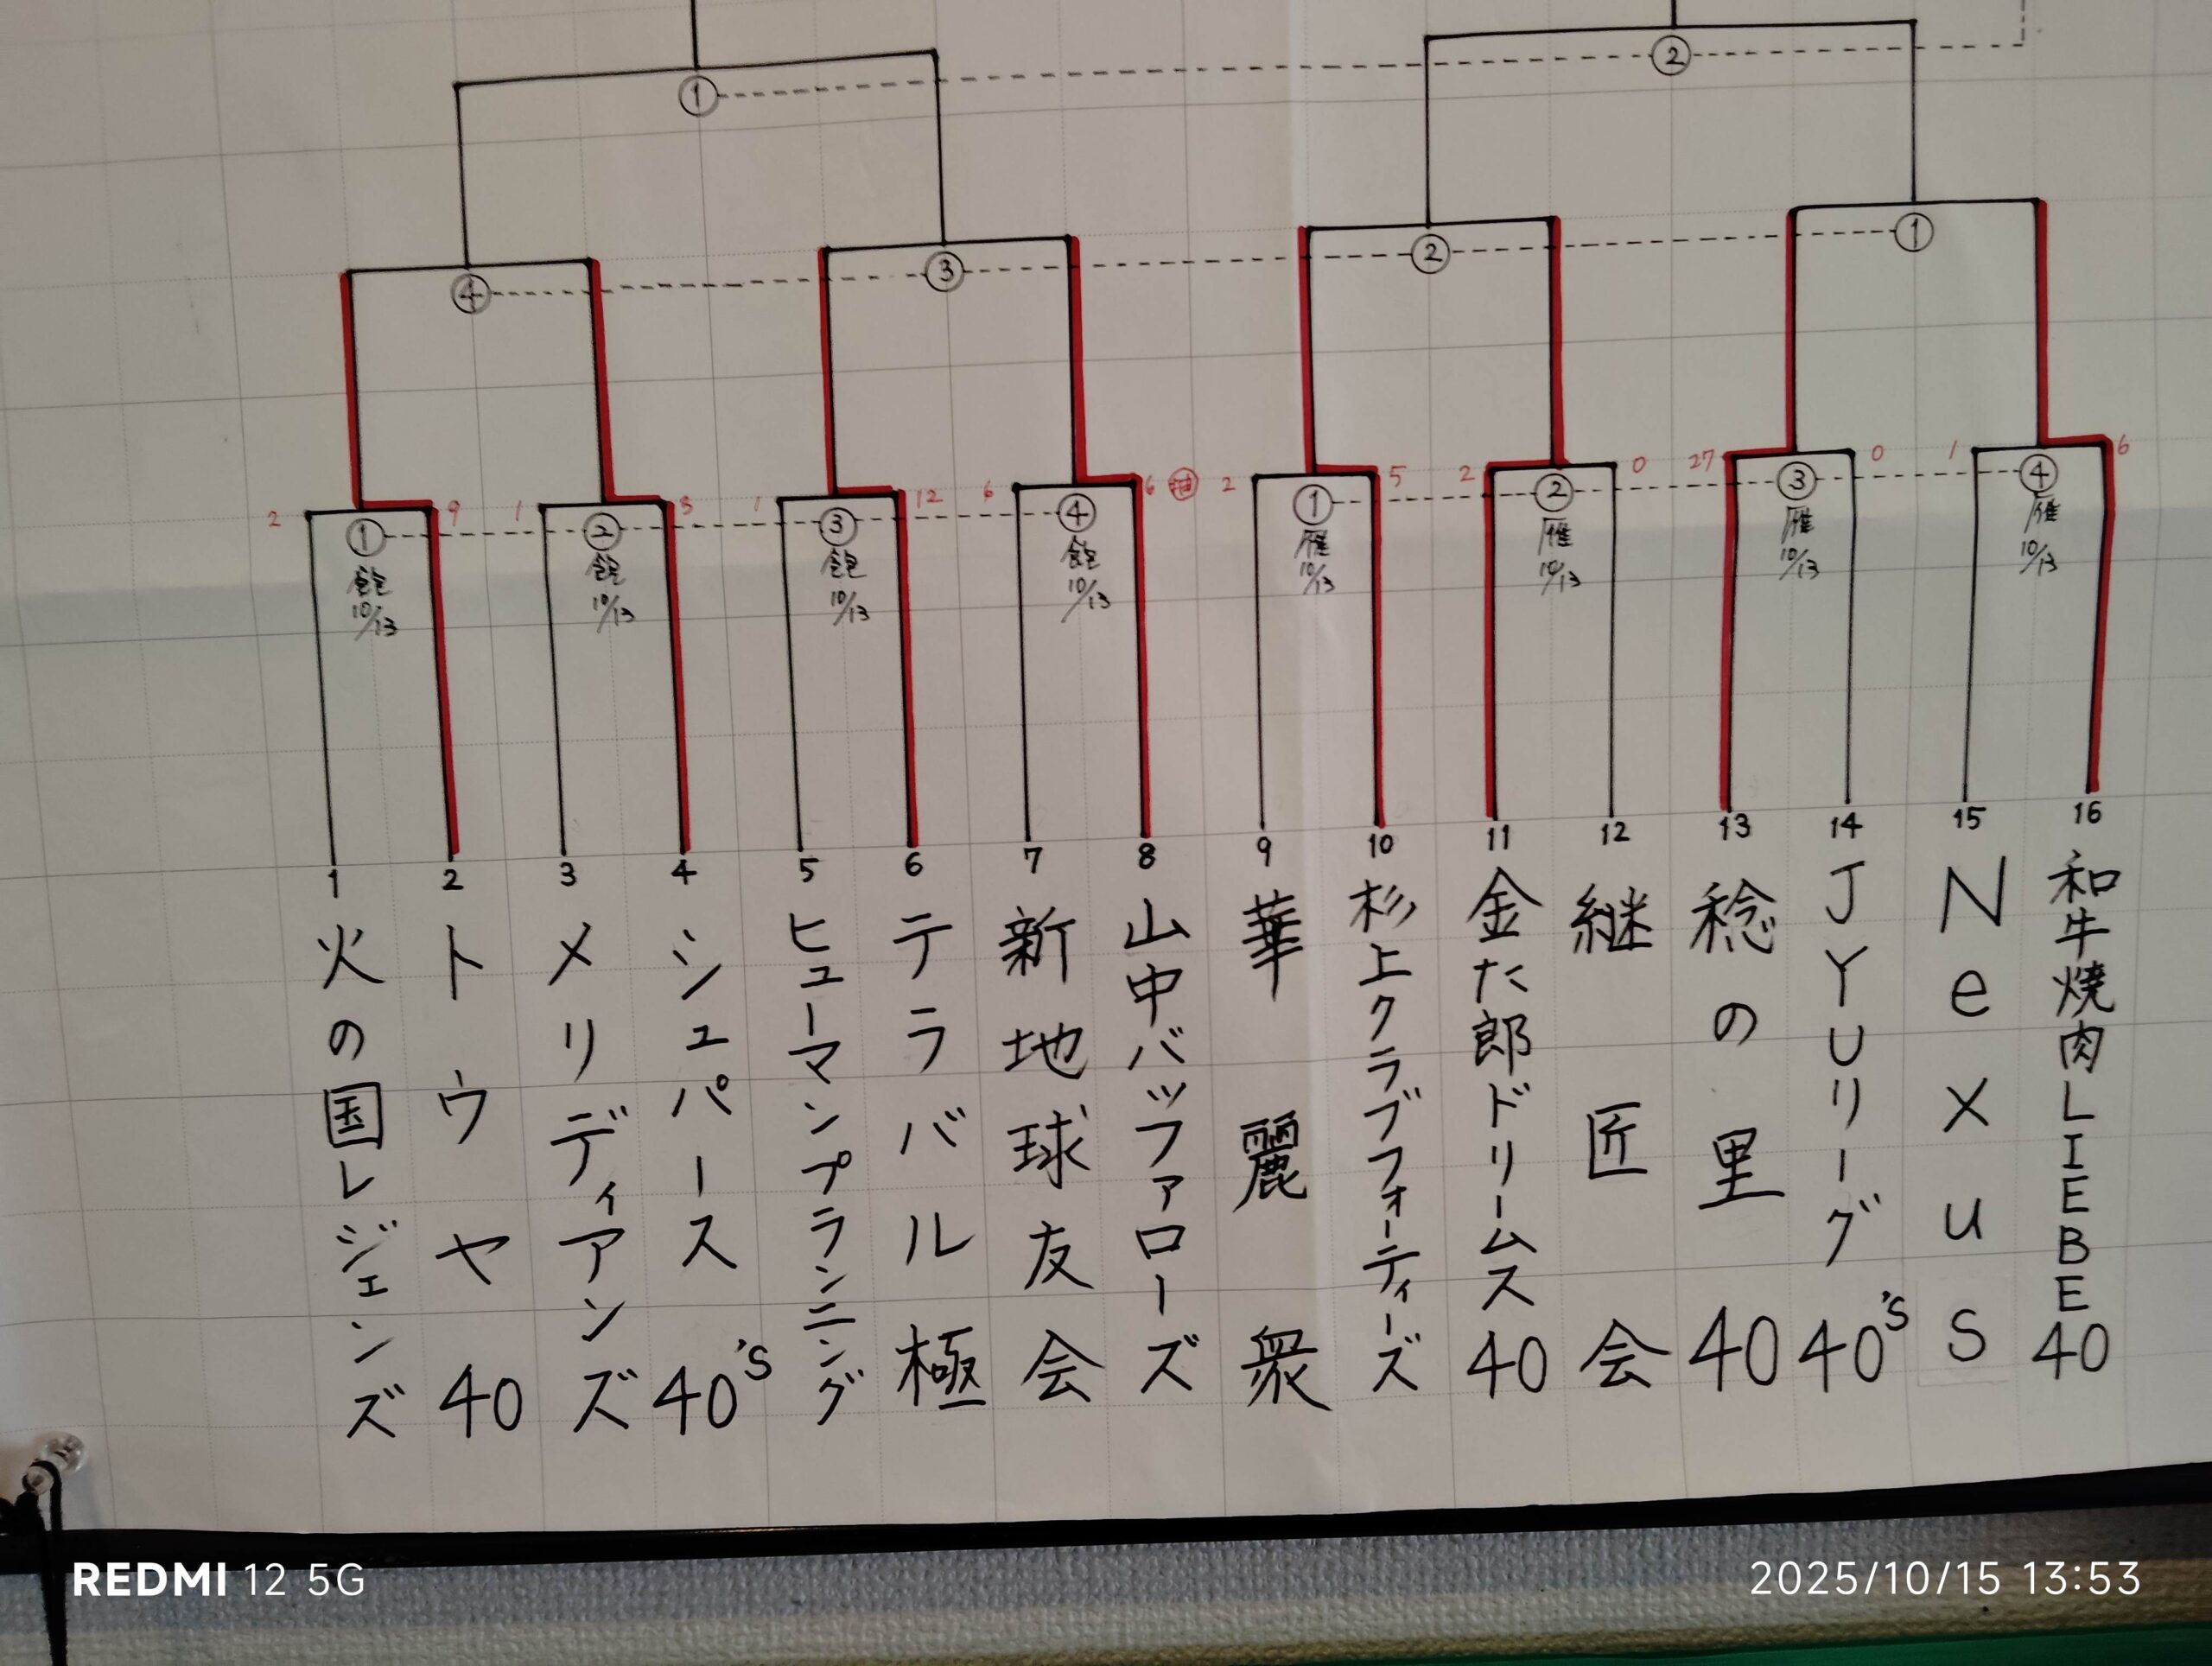 ①
②
④
③
②
①
2
9
1
1
12
6
6
2
5
2
0
27
0
1
6
①
飽
10/13
②
飽
10/13
③
飽
10/13
④
飽
10/13
①
雁
10/13
②
雁
10/13
③
雁
10/13
④
雁
10/13
1
火の国レジェンズ
2
トウヤ40
3
メリディアンズ
4
シュパース40's
5
ヒューマンプランニング
6
テラバル極
7
新地球友会
8
山中バッファローズ
9
華麗衆
10
杉上クラブフォーティーズ
11
金た郎ドリームス40
12
継匠会
13
稔の里40
14
JYUリーグ40's
15
Nexus
16
和牛焼肉LIEBE40
REDMI 12 5G
2025/10/15 13:53